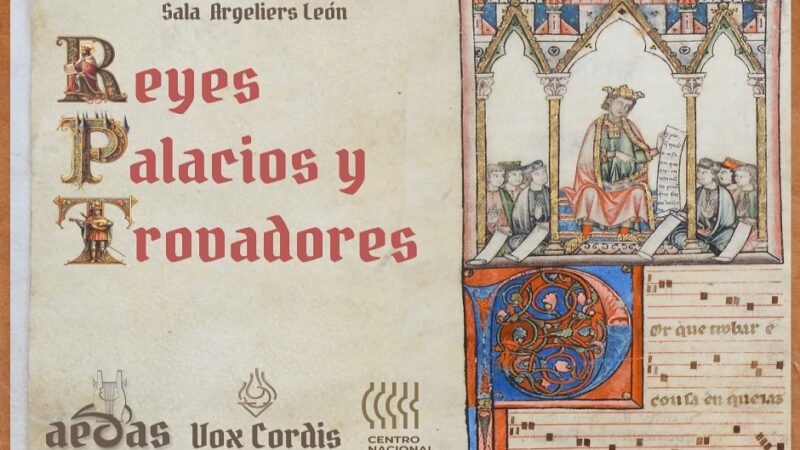 Sala Argeliers León
Reyes
Palacios y
Trovadores
aedas
Vox Cordis
CENTRO
NACIONAL
Por que trobar e
cousa en que iaz